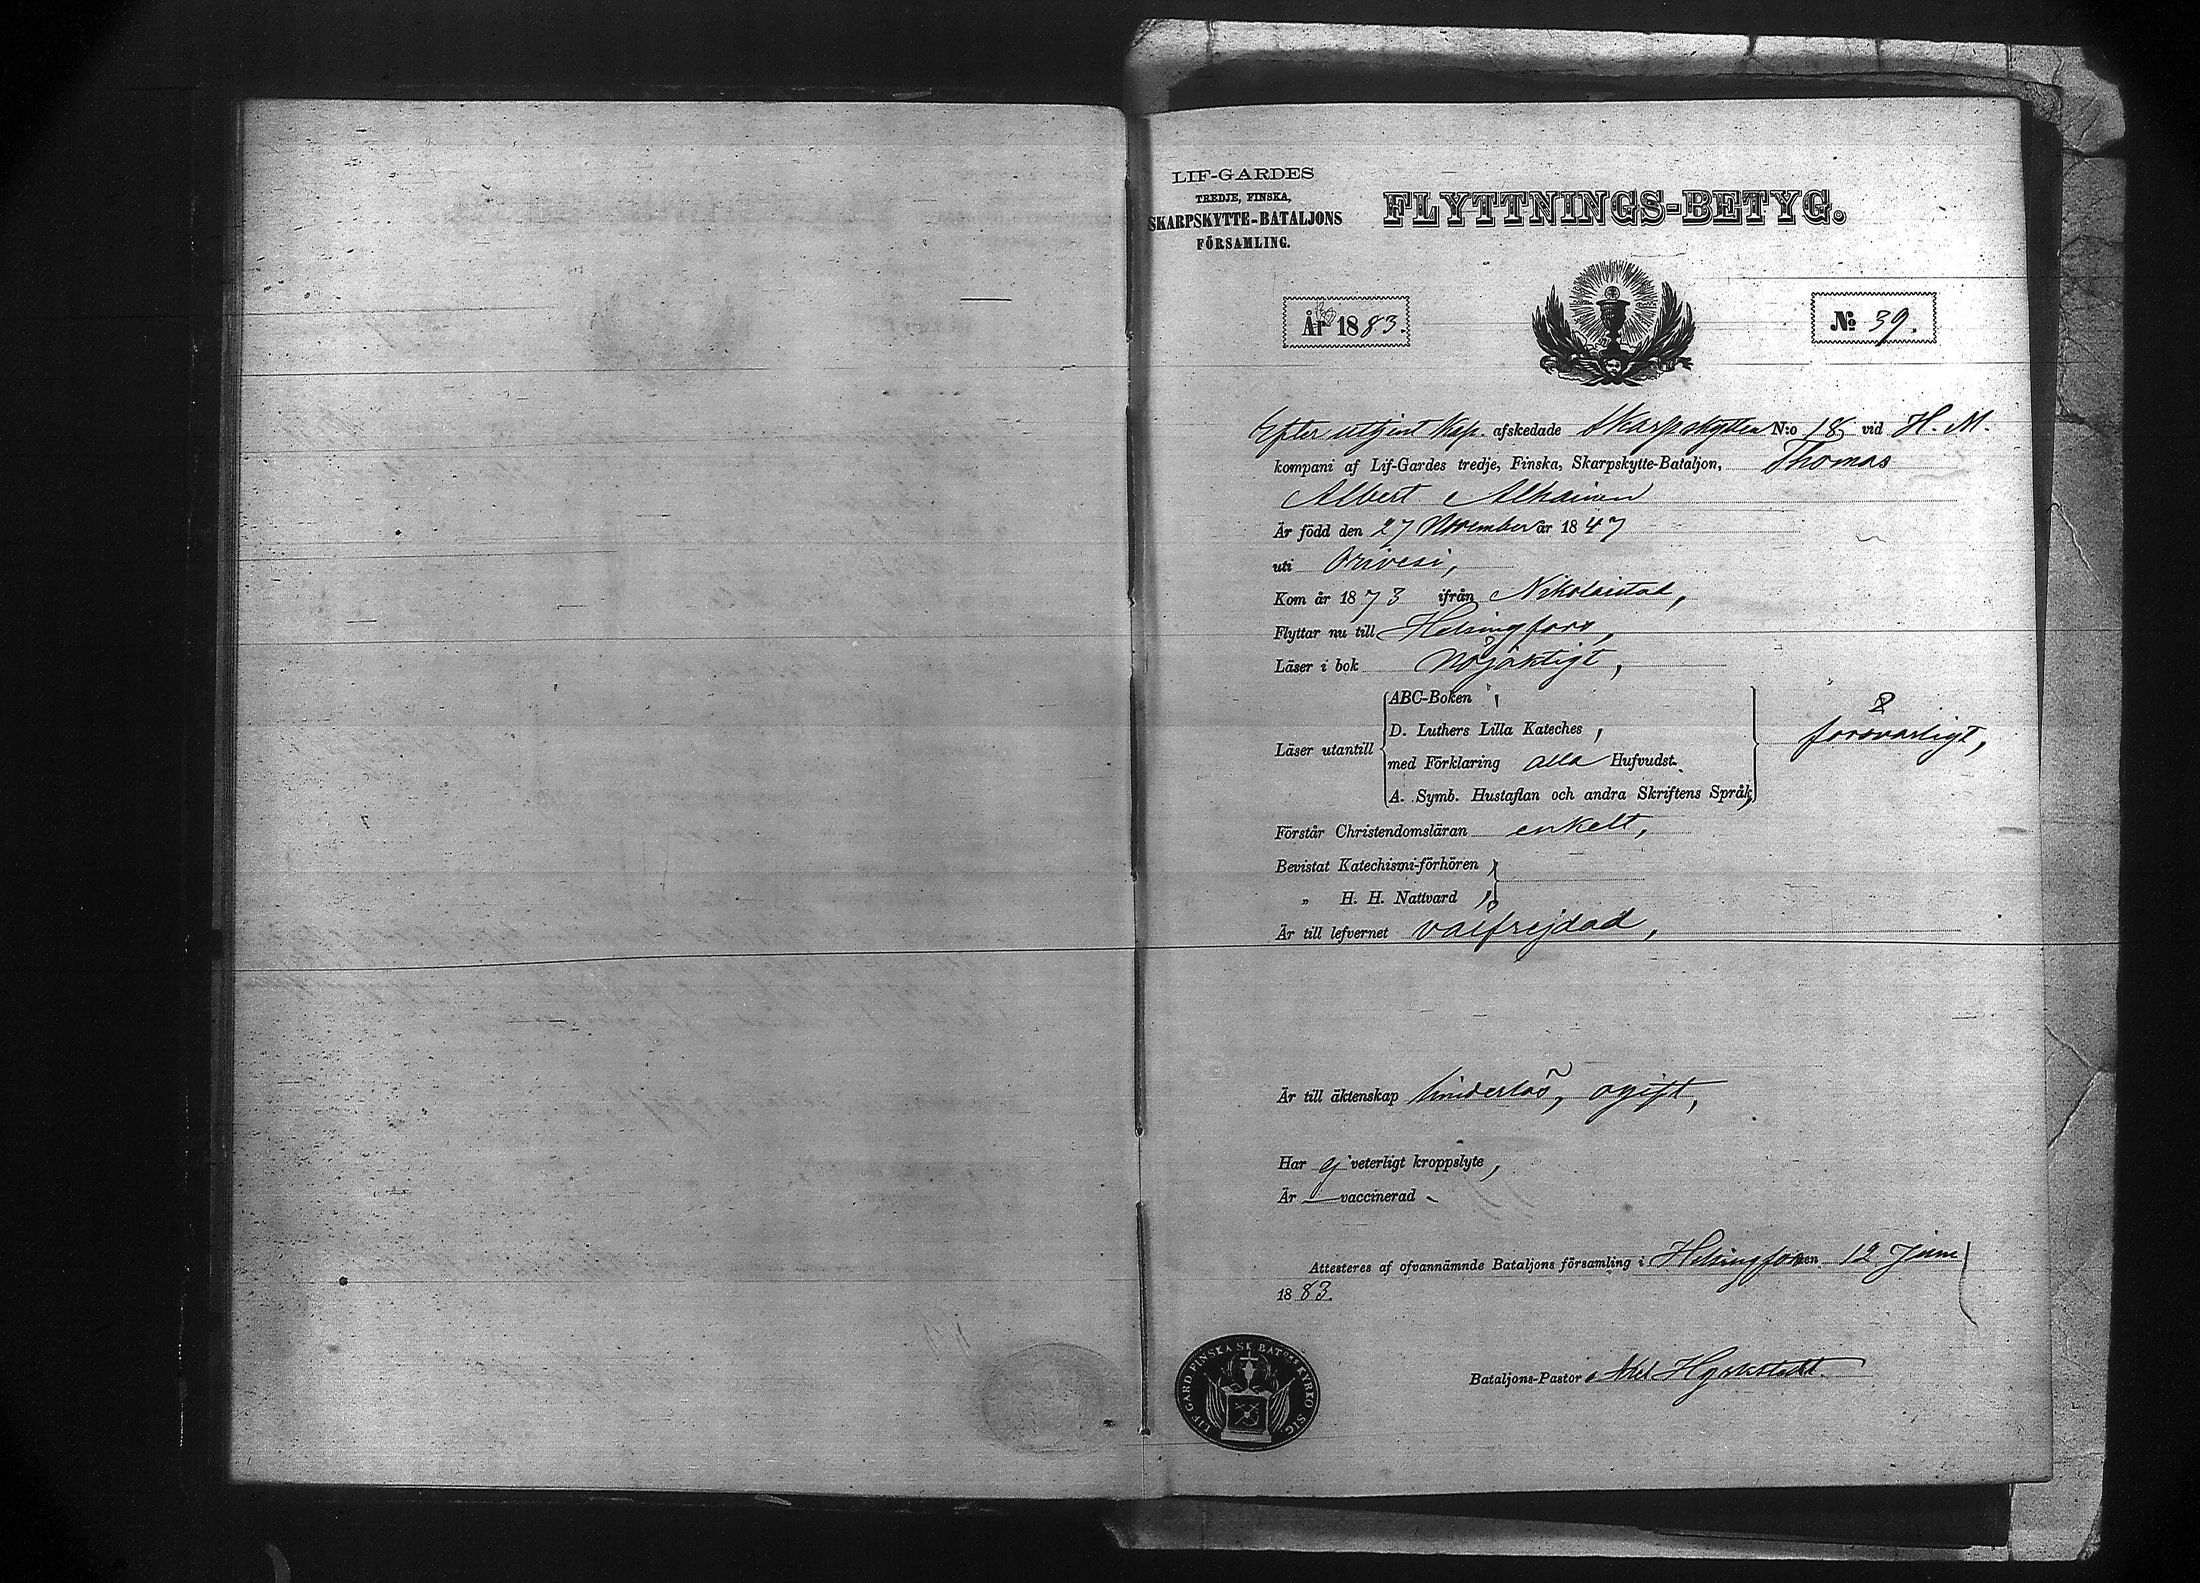 LIF-GARDES
TREDJE, FINSKA,
SKARPSKYTTE-BATALJONS
FÖRSAMLING.
FLYTTNINGS-BETYG.
År 1883.
No 39.
Efter utgint Kap. afskedade Skarpskytten N:o 18 vid H. M.
kompani af Lif-Gardes tredje, Finska, Skarpskytte-Bataljon, Thomas
Albert Alhainen
Är född den 27 November år 1847
uti Orivesi,
Kom år 1873 ifrån Nikolaistad,
Flyttar nu till Helsingfors,
Läser i bok Nöjaktigt,
Läser utantill
ABC-Boken ,
D. Luthers Lilla Kateches ,
med Förklaring alla Hufvudst.
A. Symb. Hustaflan och andra Skriftens Språk,
försvarligt,
Förstår Christendomsläran enkelt,
Bevistat Katechismi-förhören
„ H. H. Nattvard
Är till lefvernet välfrejdad,
Är till äktenskap hinderlös, ogift,
Har ej veterligt kroppslyte,
Är — vaccinerad -
Attesteres af ofvannämnde Bataljons församling i Helsingfors den 12 Juni
1883.
LIF GARD FINSKA SK BATONS KYRKO SIG.
Bataljons-Pastor Axel Hyrkstedt.